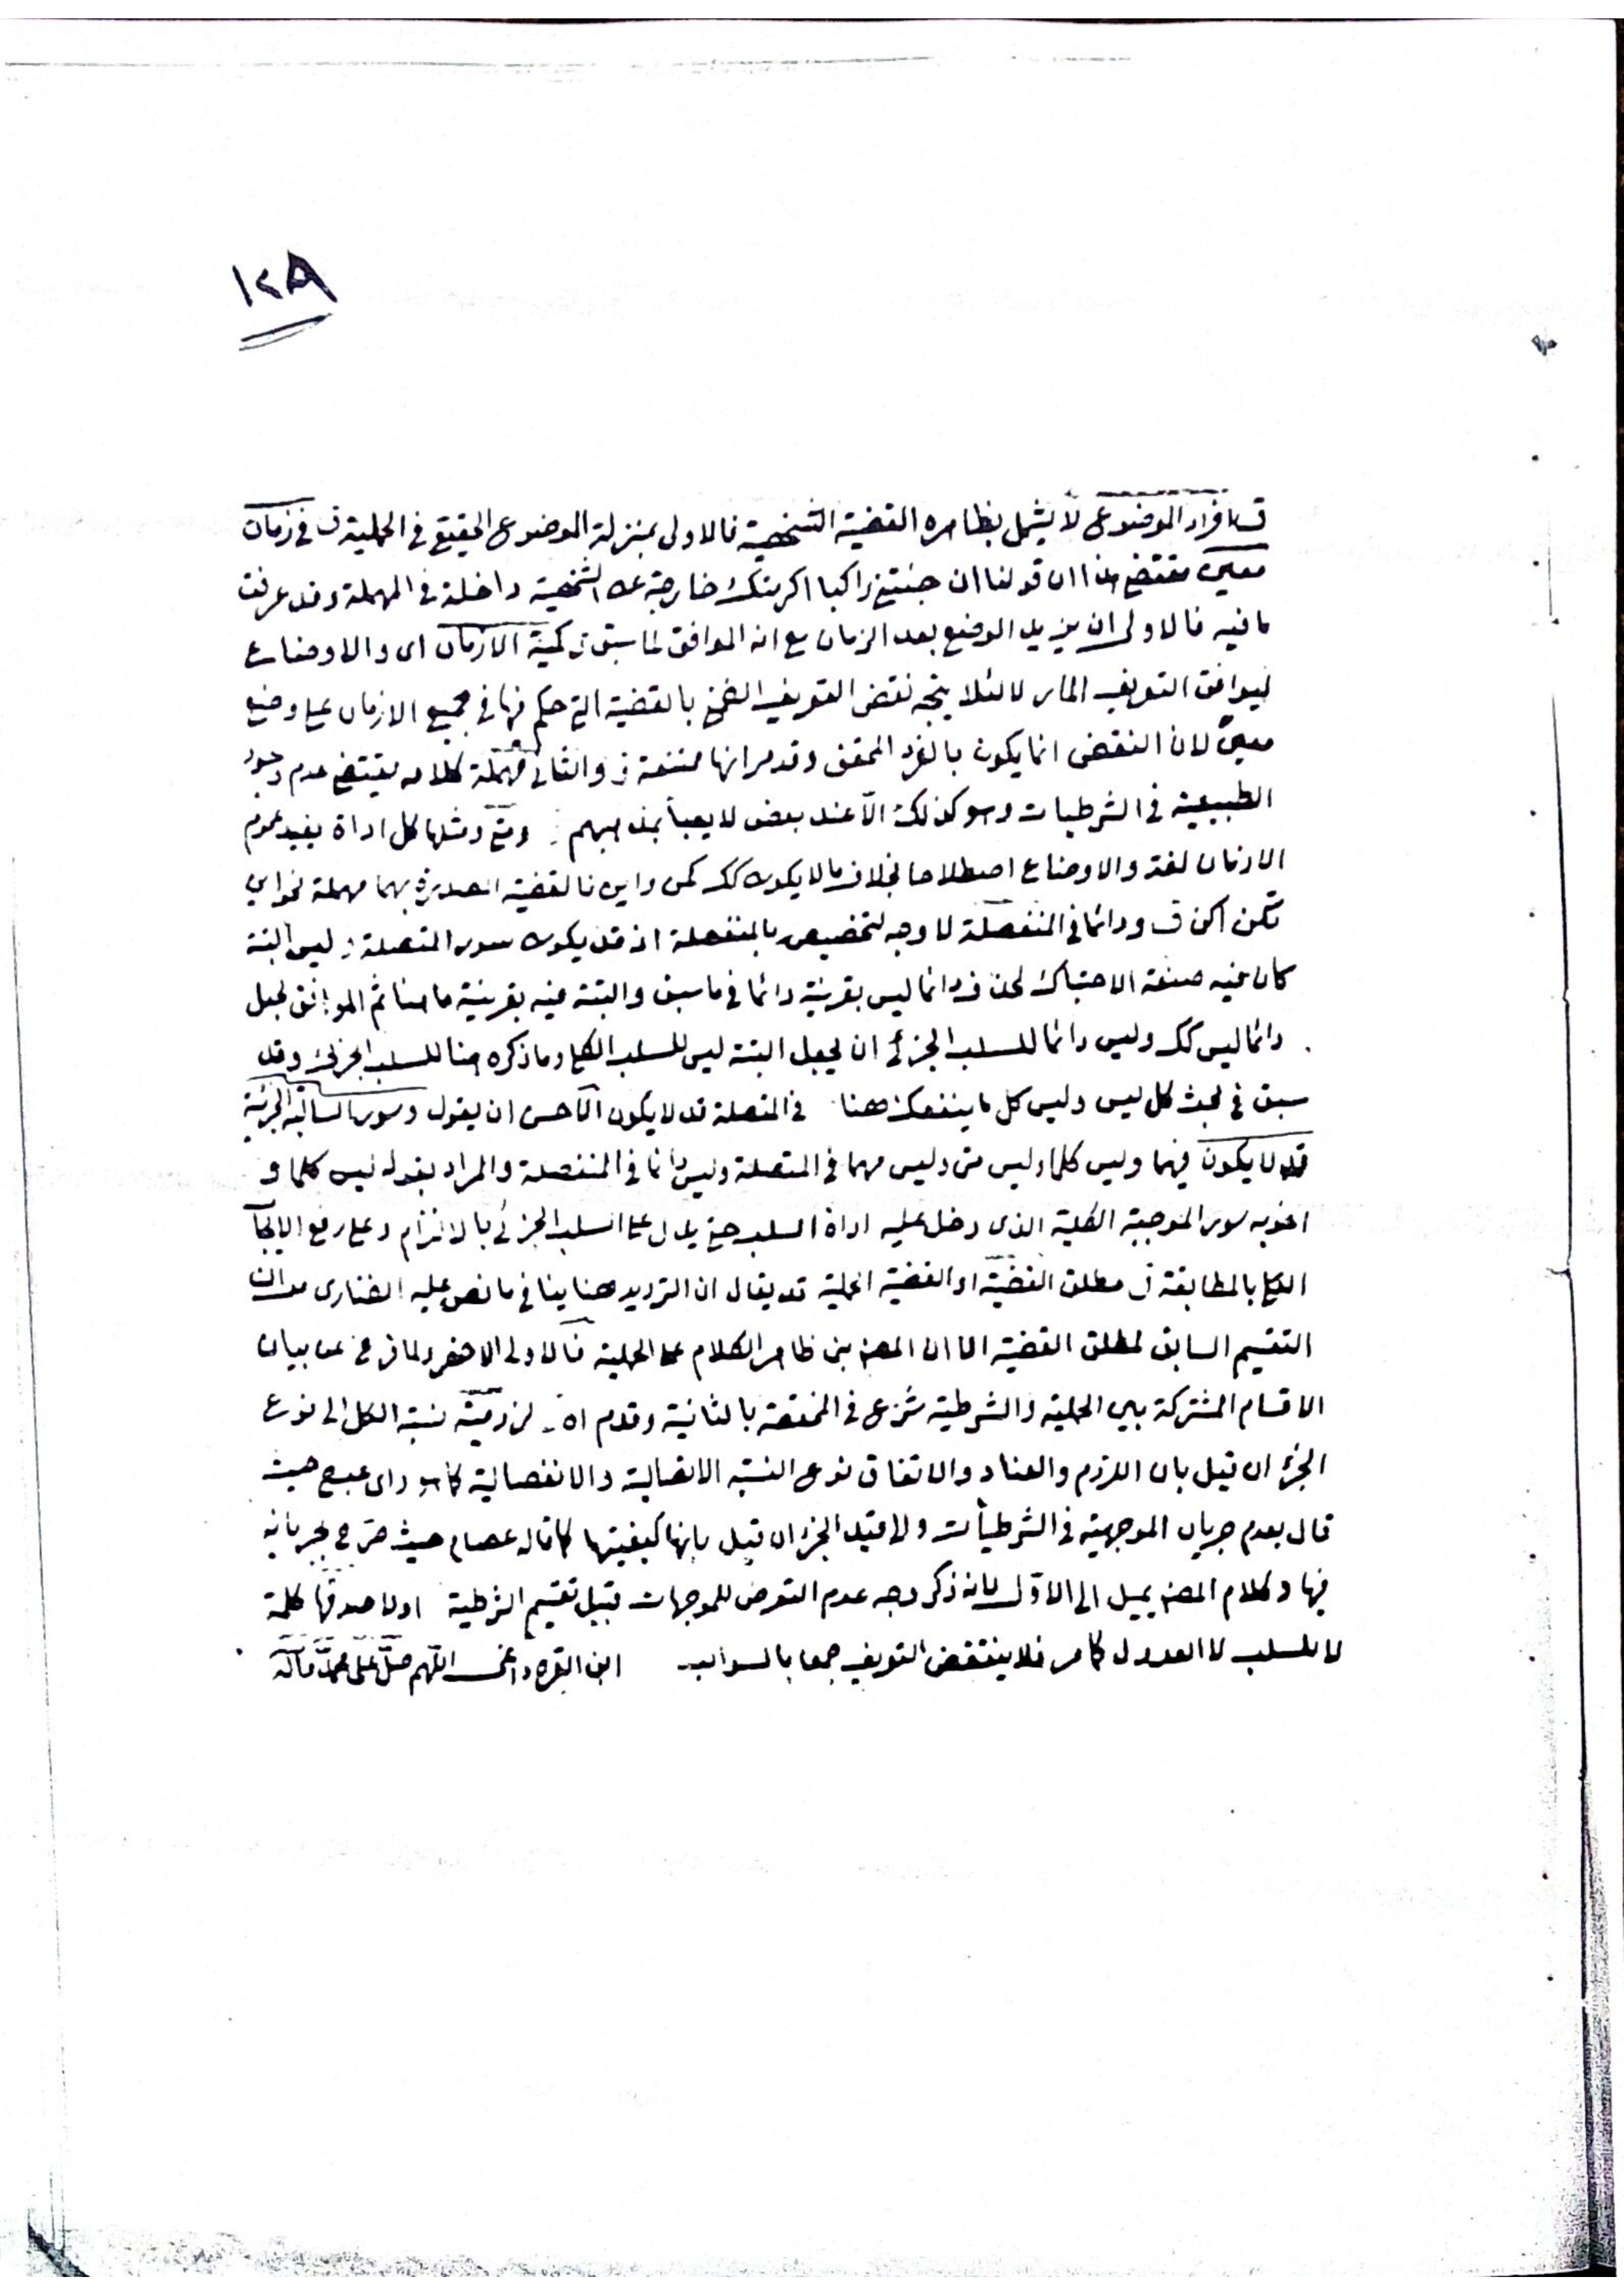 ١٢٨
افراد الموضوع لا يشمل بظاهره القضية الشخصية فالاولى بمنزلة الموضوع الحقيقي في الحملية في زمان
معين مقتضى هذا ان قولنا ان جئتني راكبا اكرمتك خارجة عن الشخصية داخلة في المهملة وقد عرفت
ما فيه فالاولى ان يزيد الوضع بعد الزمان مع انه الموافق لما سبق كمية الازمان اى والاوضاع
ليوافق التعريف المار لا لئلا يتجه نقض التعريف الضمني بالقضية التي حكم فيها في جميع الازمان على وضع
معين لان النقض انما يكون بالفرد المحقق وقد مر انها ممتنعة والثاني مهملة كلامه يقتضي عدم وجود
الطبيعية في الشرطيات وهو كذلك الا عند بعض لا يعبأ بمذهبهم ومتى ومثلها كل اداة يفيد عموم
الازمان لغة والاوضاع اصطلاحا بخلاف ما لا يكون كك كمن واين فالقضية المصدرة بهما مهملة نحو اين
تكن اكن ودائما في المنفصلة لا وجه لتخصيص بالمنفصلة اذ قد يكون سور المتصلة ليس البتة
كان فيه صنعة الاحتباك لحذف دائما ليس بقرينة دائما في ما سبق والبتة فيه بقرينة ما هنا ثم الموافق لجعل
دائما ليس كك وليس دائما للسلب الجزئي ان يجعل البتة ليس للسلب الكلي وما ذكره هنا للسلب الجزئي وقد
سبق في بحث كل ليس وليس كل ما ينفعك هنا في المتصلة قد لا يكون الاحسن ان يقول وسور السالبة الجزئية
قد لا يكون فيهما وليس كلما وليس متى وليس مهما في المتصلة وليس دائما في المنفصلة والمراد بقوله ليس كلما و
اخويه سور الموجبة الكلية الذى دخل عليه اداة السلب حتى يدل على السلب الجزئي بالالتزام وعلى رفع الايجا
الكلي بالمطابقة مطلق القضية او القضية الحملية قد يقال ان الترديد هنا ينافي ما نص عليه الفناری من ان
التقسيم السابق لمطلق القضية الا ان المصنف بنى ظاهر الكلام على الحملية فالاولى الاخصر ولما فرغ عن بيان
الاقسام المشتركة بين الحملية والشرطية شرع في المختصة بالثانية وقدم اه لزومية نسبة الكل الى نوع
الجزء ان قيل بان اللزوم والعناد والاتفاق نوع النسبة الاتصالية والانفصالية كما هو راى عبدح حيث
قال بعدم جريان الموجهية في الشرطيات والى قيد الجزء ان قيل بانها كيفيتها كما قاله عصام حيث صرح بجريانه
فيها وكلام المصنف يميل الى الاول لانه ذكر وجه عدم التعرض للموجهات قبيل تقسيم الشرطية اولا صدقها كلمة
لا للسلب لا العدول كما مر فلا ينتقض التعريف جمعا بالسوالب ابن القره داغى اللهم صل على محمد وآله